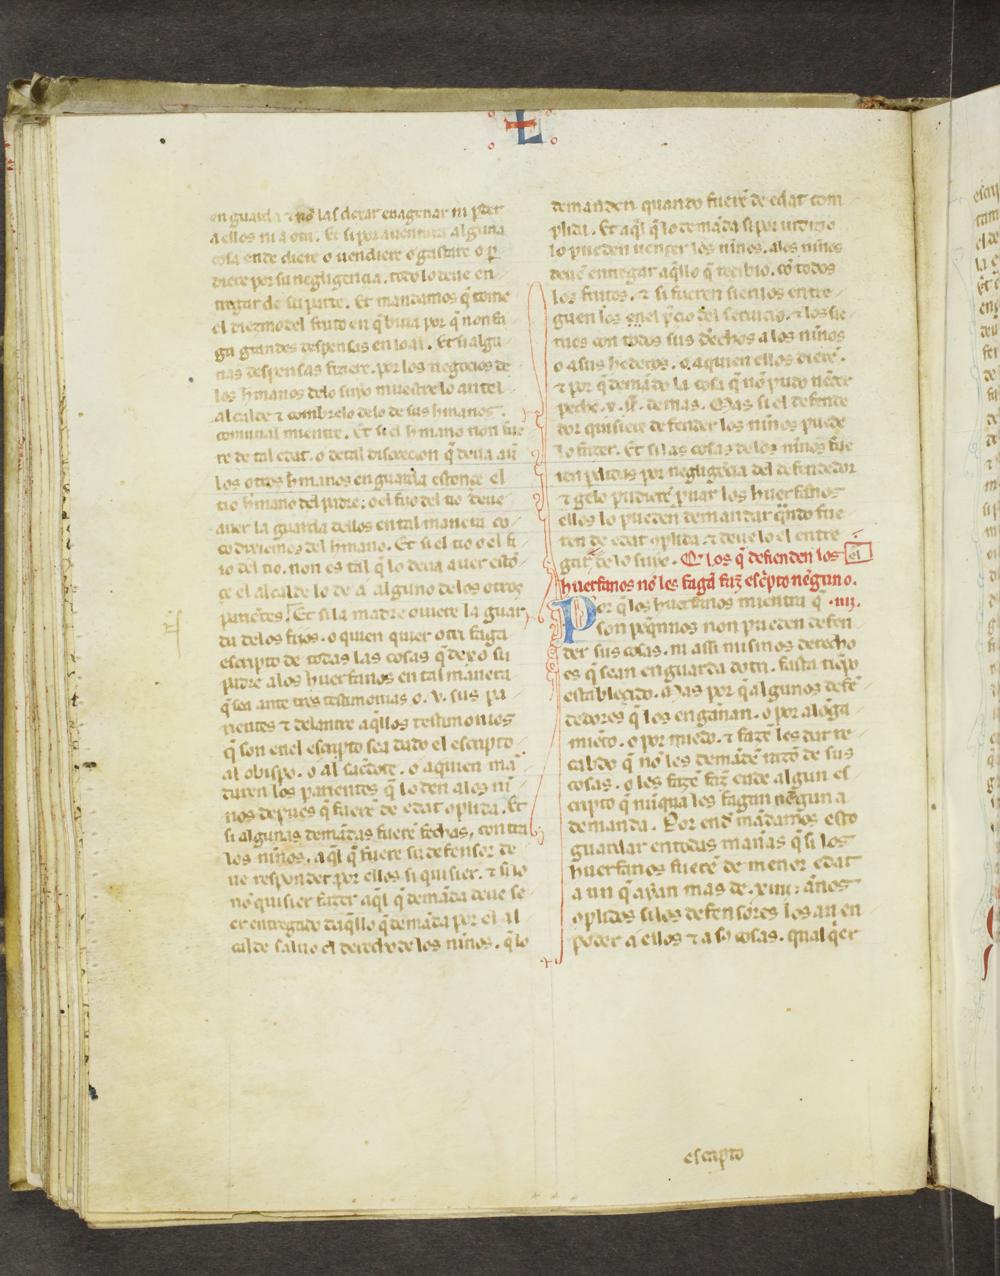 L
en guarda ⁊ nõ las dexar enagenar ni ꝑder
a ellos ni a otri. Et si por auentura alguna
cosa ende diere o uendiere o gastare o ꝑ
diere por su negligencia. todo lo deue en
tregar de su parte. Et mandamos q̃ tome
el diezmo del fruto en q̃ biua por q̃ non fa
ga grandes despensas en lo al. Et si algu
nas despensas fiziere. por los negocios de
los hr̃manos delo suyo muestre lo antel
alcalde ⁊ combrelo delo de sus hr̃manos.
comunal mientre. Et si el hr̃mano non fue
re de tal edat. o de tal discrecion q̃ deua auer
los otros hr̃manos en guarda estonçe el
tio hr̃mano del padre. o el fijo del tio deue
auer la guarda dellos en tal manera co
mo diximos del hr̃mano. Et si el tio o el fi
io del tio. non es tal q̃ lo deua auer estõ
çe el alcalde lo de a alguno delos otros
pariẽtes. Et si la madre ouiere la guar
da delos fijos. o quien quier otri faga
escripto de todas las cosas q̃ dexo su
padre alos huerfanos en tal manera
q̃ sea ante tres testimonias o .v. sus pa
rientes ⁊ delantre aq̃llos testimonios
q̃ son enel escripto sea dado el escripto
al obispo. o al saçdote. o aquien man
daren los parientes q̃ lo den alos ni
nos depues q̃ fuerẽ de edat cõplida. Et
si algunas demãdas fuerẽ fechas, contra
los niños. aq̃l q̃ fuere su defensor de
ue responder por ellos si quisier. ⁊ si lo
nõ quisier fazer aq̃l q̃ demãda deue se
er entregado daq̃llo q̃ demãda por el al
calde saluo el derecho de los niños. q̃ lo
demanden quando fuerẽ de edat com
plida. Et aq̃l q̃ lo demãda si por iudizio
lo pueden uençer los niños. alos niños
deuẽ entregar aq̃llo q̃ reçibio. cõ todos
los frutos. ⁊ si fueren sieruos entre
guen los enel p̃cio del seruicio. ⁊ los sie
ruos con todos sus dr̃echos a los niños
o a sus herederos. o aquien ellos dierẽ.
⁊ por q̃ demãdo la cosa q̃ nõ pudo uẽcer
peche .v. ss. demas. Mas si el defende
dor quisiere defender los niños puede
lo fazer. Et si las cosas de los niños fue
ren ꝑdidas por negligẽcia del defendedor
⁊ gelo pudierẽ ꝓuar los huerfanos
ellos lo pueden demandar q̃ndo fue
ren de edat cõplida ⁊ deue lo el entre
gar de lo suyo. Q̃ los q̃ defienden los
el
huerfanos nõ les fagã faz̃ esc̃pto nẽguno.
.iiij.
Por q̃ los huerfanos mientra q̃
son peq̃nnos non pueden defen
der sus cosas. ni assi mismos derecho
es q̃ sean en guarda dotri. fasta tiẽpo
establecido. Mas por q̃ algunos defẽ
dedores q̃ los engañan. o por aloga
miẽto. o por miedo. ⁊ fazẽ les dar re
cabdo q̃ nõ les demãdẽ nada de sus
cosas. o les fazẽ faz̃ ende algun es
cripto q̃ nũqua les fagan nẽguna
demanda. Por end̃ mãdamos esto
guardar en todas mañas q̃ si los
huerfanos fuerẽ de menor edat
aun q̃ ayan mas de .xiiij. años
cõplidos si los defensores los an en
poder a ellos ⁊ a so cosas. qual q̃er
escripto